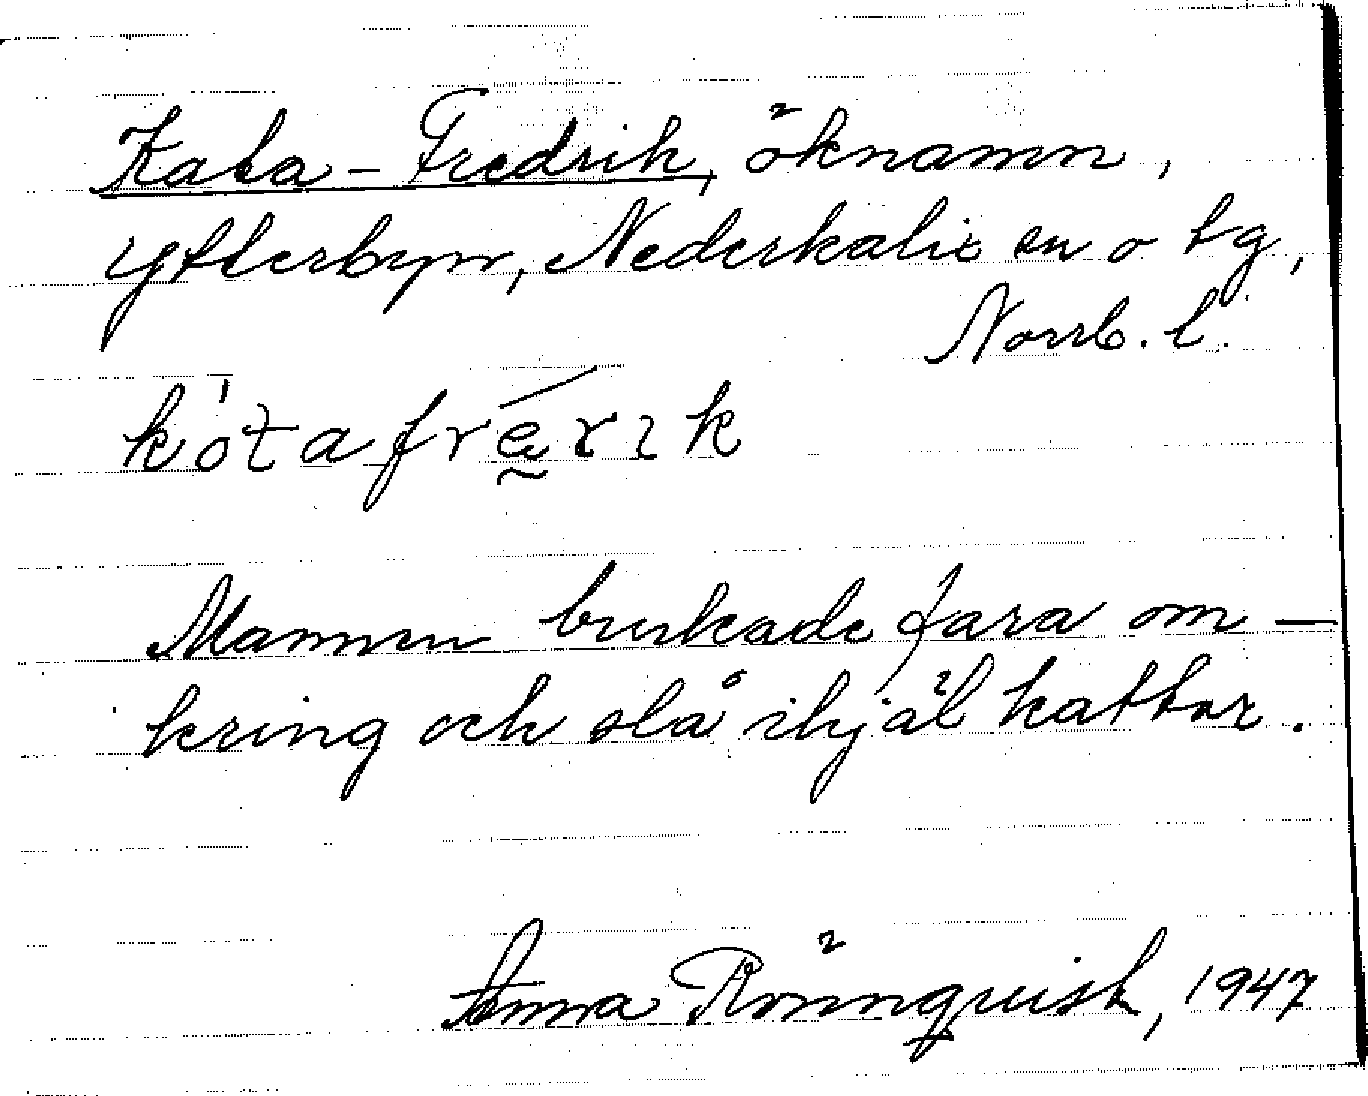 Kata-Fredrik, öknamn,
Ytterbyn, Nederkalix sn o tg,
Norrb. l.
kótafrę́rık
Mannen brukade fara om-
kring och slå ihjäl kattor.
Anna Rönnqvist, 1947